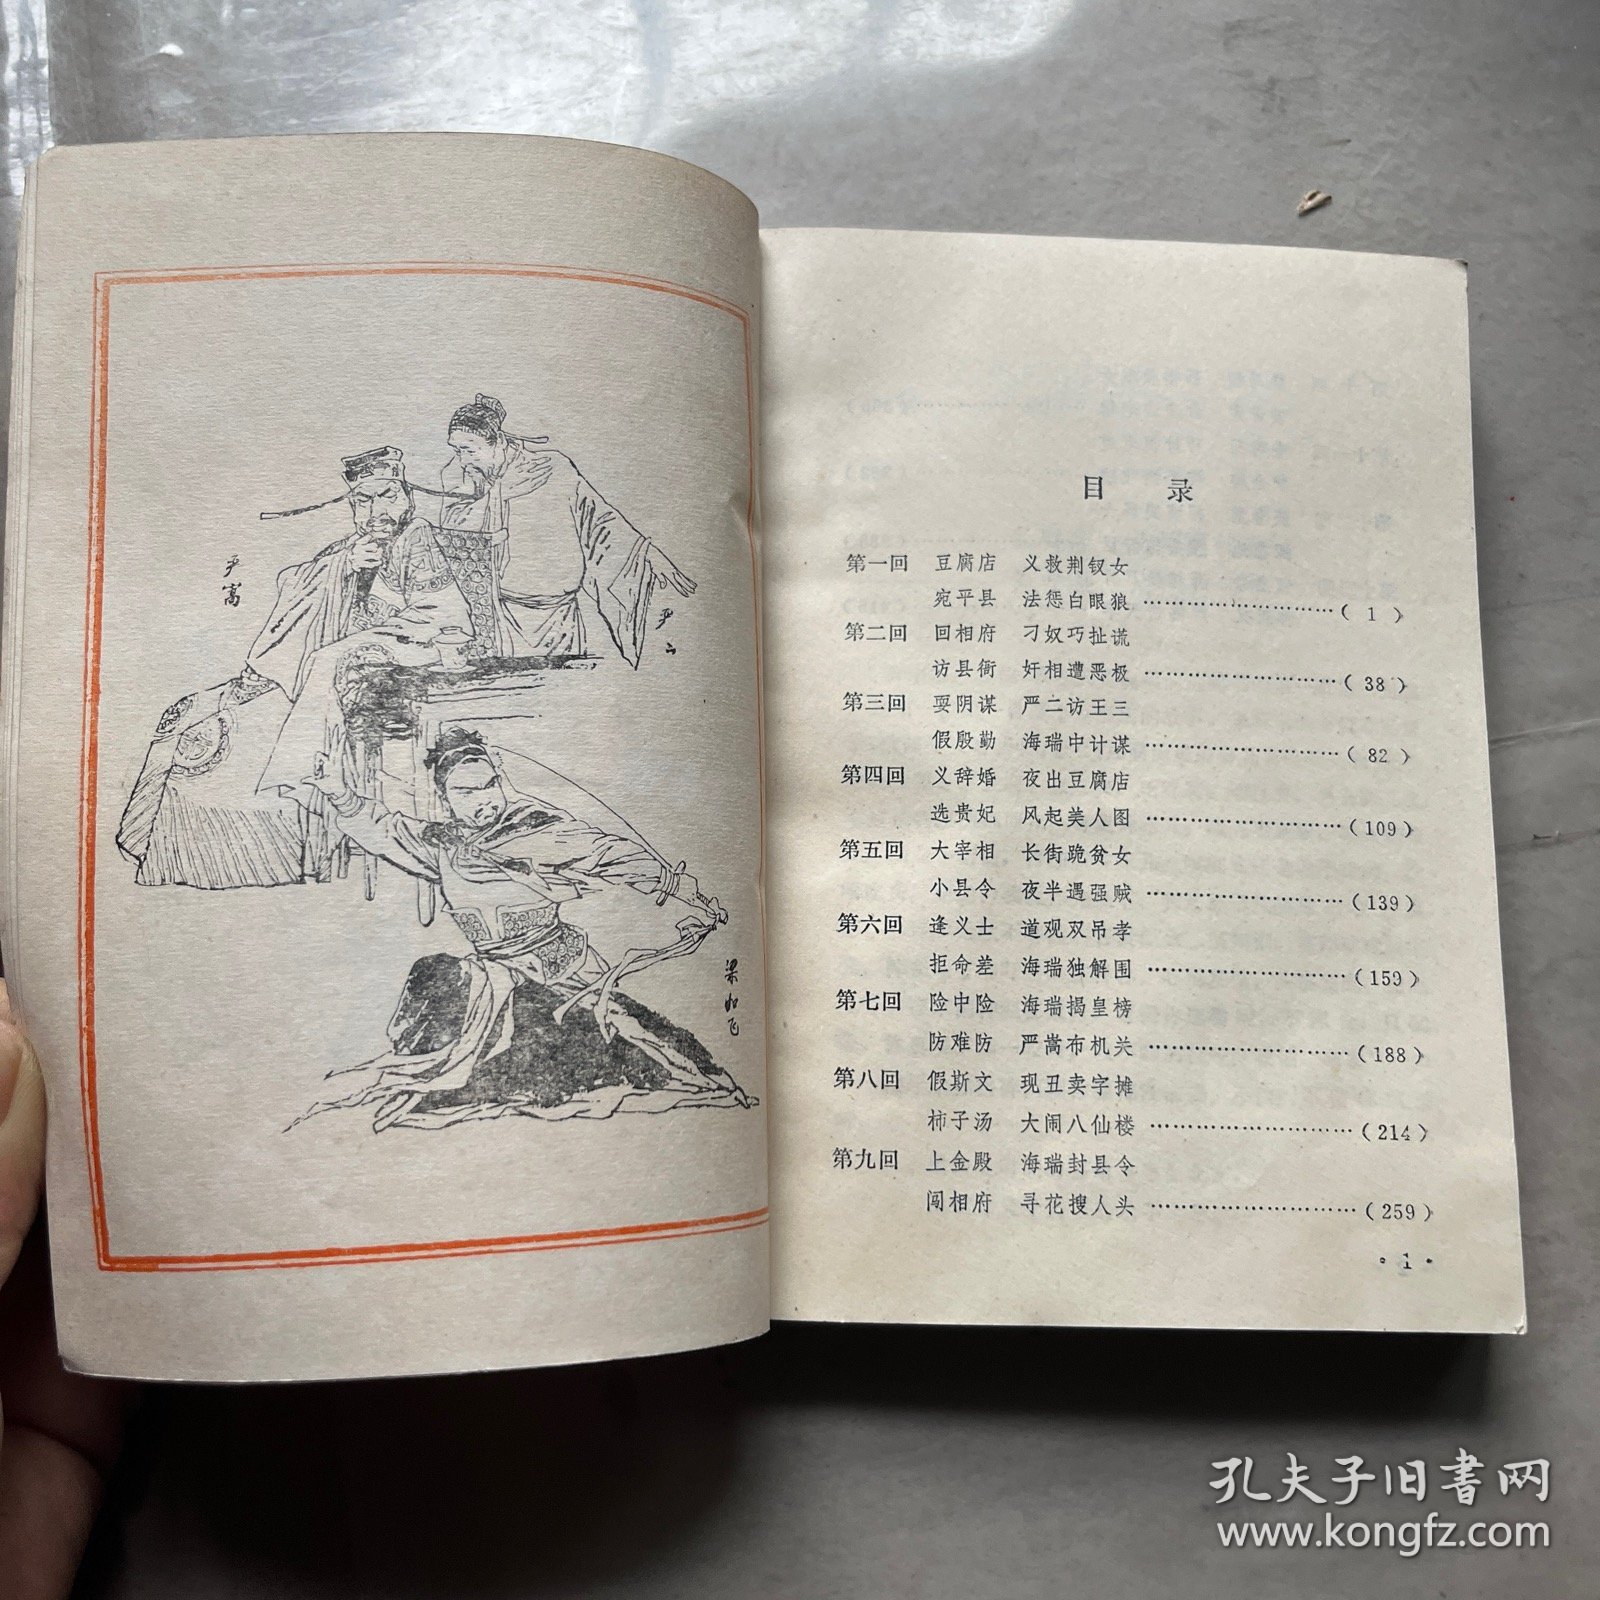 严嵩
严二
梁如飞
目 录
第一回 豆腐店 义救荆钗女
宛平县 法惩白眼狼……………………(1)
第二回 回相府 刁奴巧扯谎
访县衙 奸相遭恶极……………………(38)
第三回 耍阴谋 严二访王三
假殷勤 海瑞中计谋……………………(82)
第四回 义辞婚 夜出豆腐店
选贵妃 风起美人图……………………(109)
第五回 大宰相 长街跪贫女
小县令 夜半遇强贼……………………(139)
第六回 逢义士 道观双吊孝
拒命差 海瑞独解围……………………(159)
第七回 险中险 海瑞揭皇榜
防难防 严嵩布机关……………………(188)
第八回 假斯文 现丑卖字摊
柿子汤 大闹八仙楼……………………(214)
第九回 上金殿 海瑞封县令
闯相府 寻花搜人头……………………(259)
·1·
孔夫子旧书网
www.kongfz.com